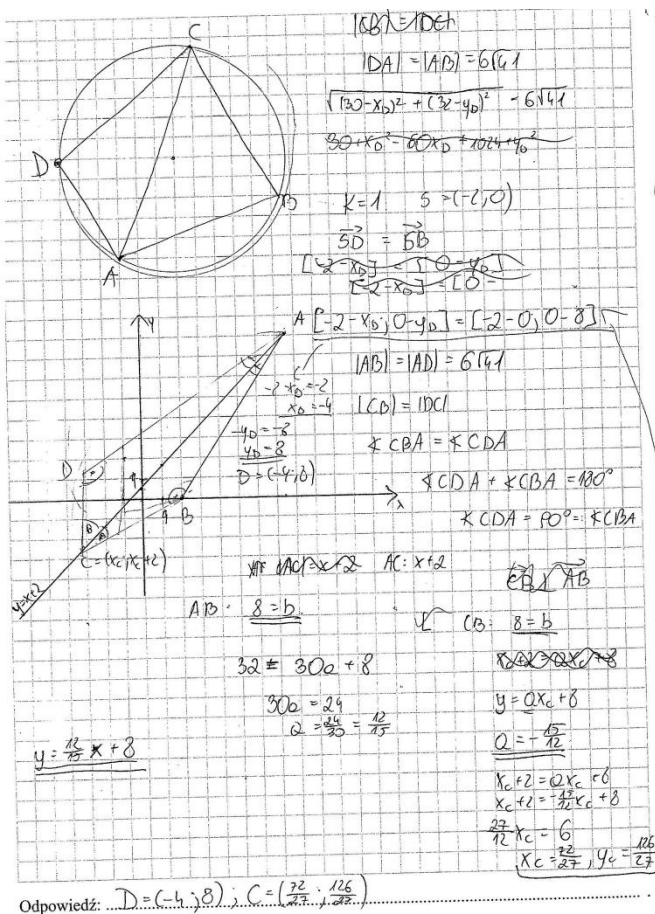 C
D
B
A
|CB| = |DC|
|DA| = |AB| = 6√41
√(30-x_D)² + (32-y_D)² = 6√41
30+x_D² - 60x_D + 1024+y_D²
K=1 S=(-2;0)
SD = SB
[-2-x_D] = [0-y_D]
[-2-x_D] = [0-
[-2-x_D; 0-y_D] = [-2-0; 0-8]
-2-x_D=-2
x_D=-4
-y_D=-8
y_D=8
D=(-4;8)
|AB| = |AD| = 6√41
|CB| = |DC|
∢ CBA = ∢ CDA
∢ CDA + ∢ CBA = 180°
∢ CDA = 90° = ∢ CBA
y
A
D
1
1
B
x
C=(x_C; x_C+2)
y=x+2
AC: x+2
CB AB
AB: 8=b
32 = 30a + 8
30a = 24
a = 24/30 = 12/15
y = 12/15 x + 8
CB: 8=b
y = ax_C + 8
a = -15/12
x_C+2 = ax_C + 8
x_C+2 = -15/12 x_C + 8
27/12 x_C = 6
x_C = 72/27, y_C = 126/27
Odpowiedź: D=(-4;8); C=(72/27; 126/27)